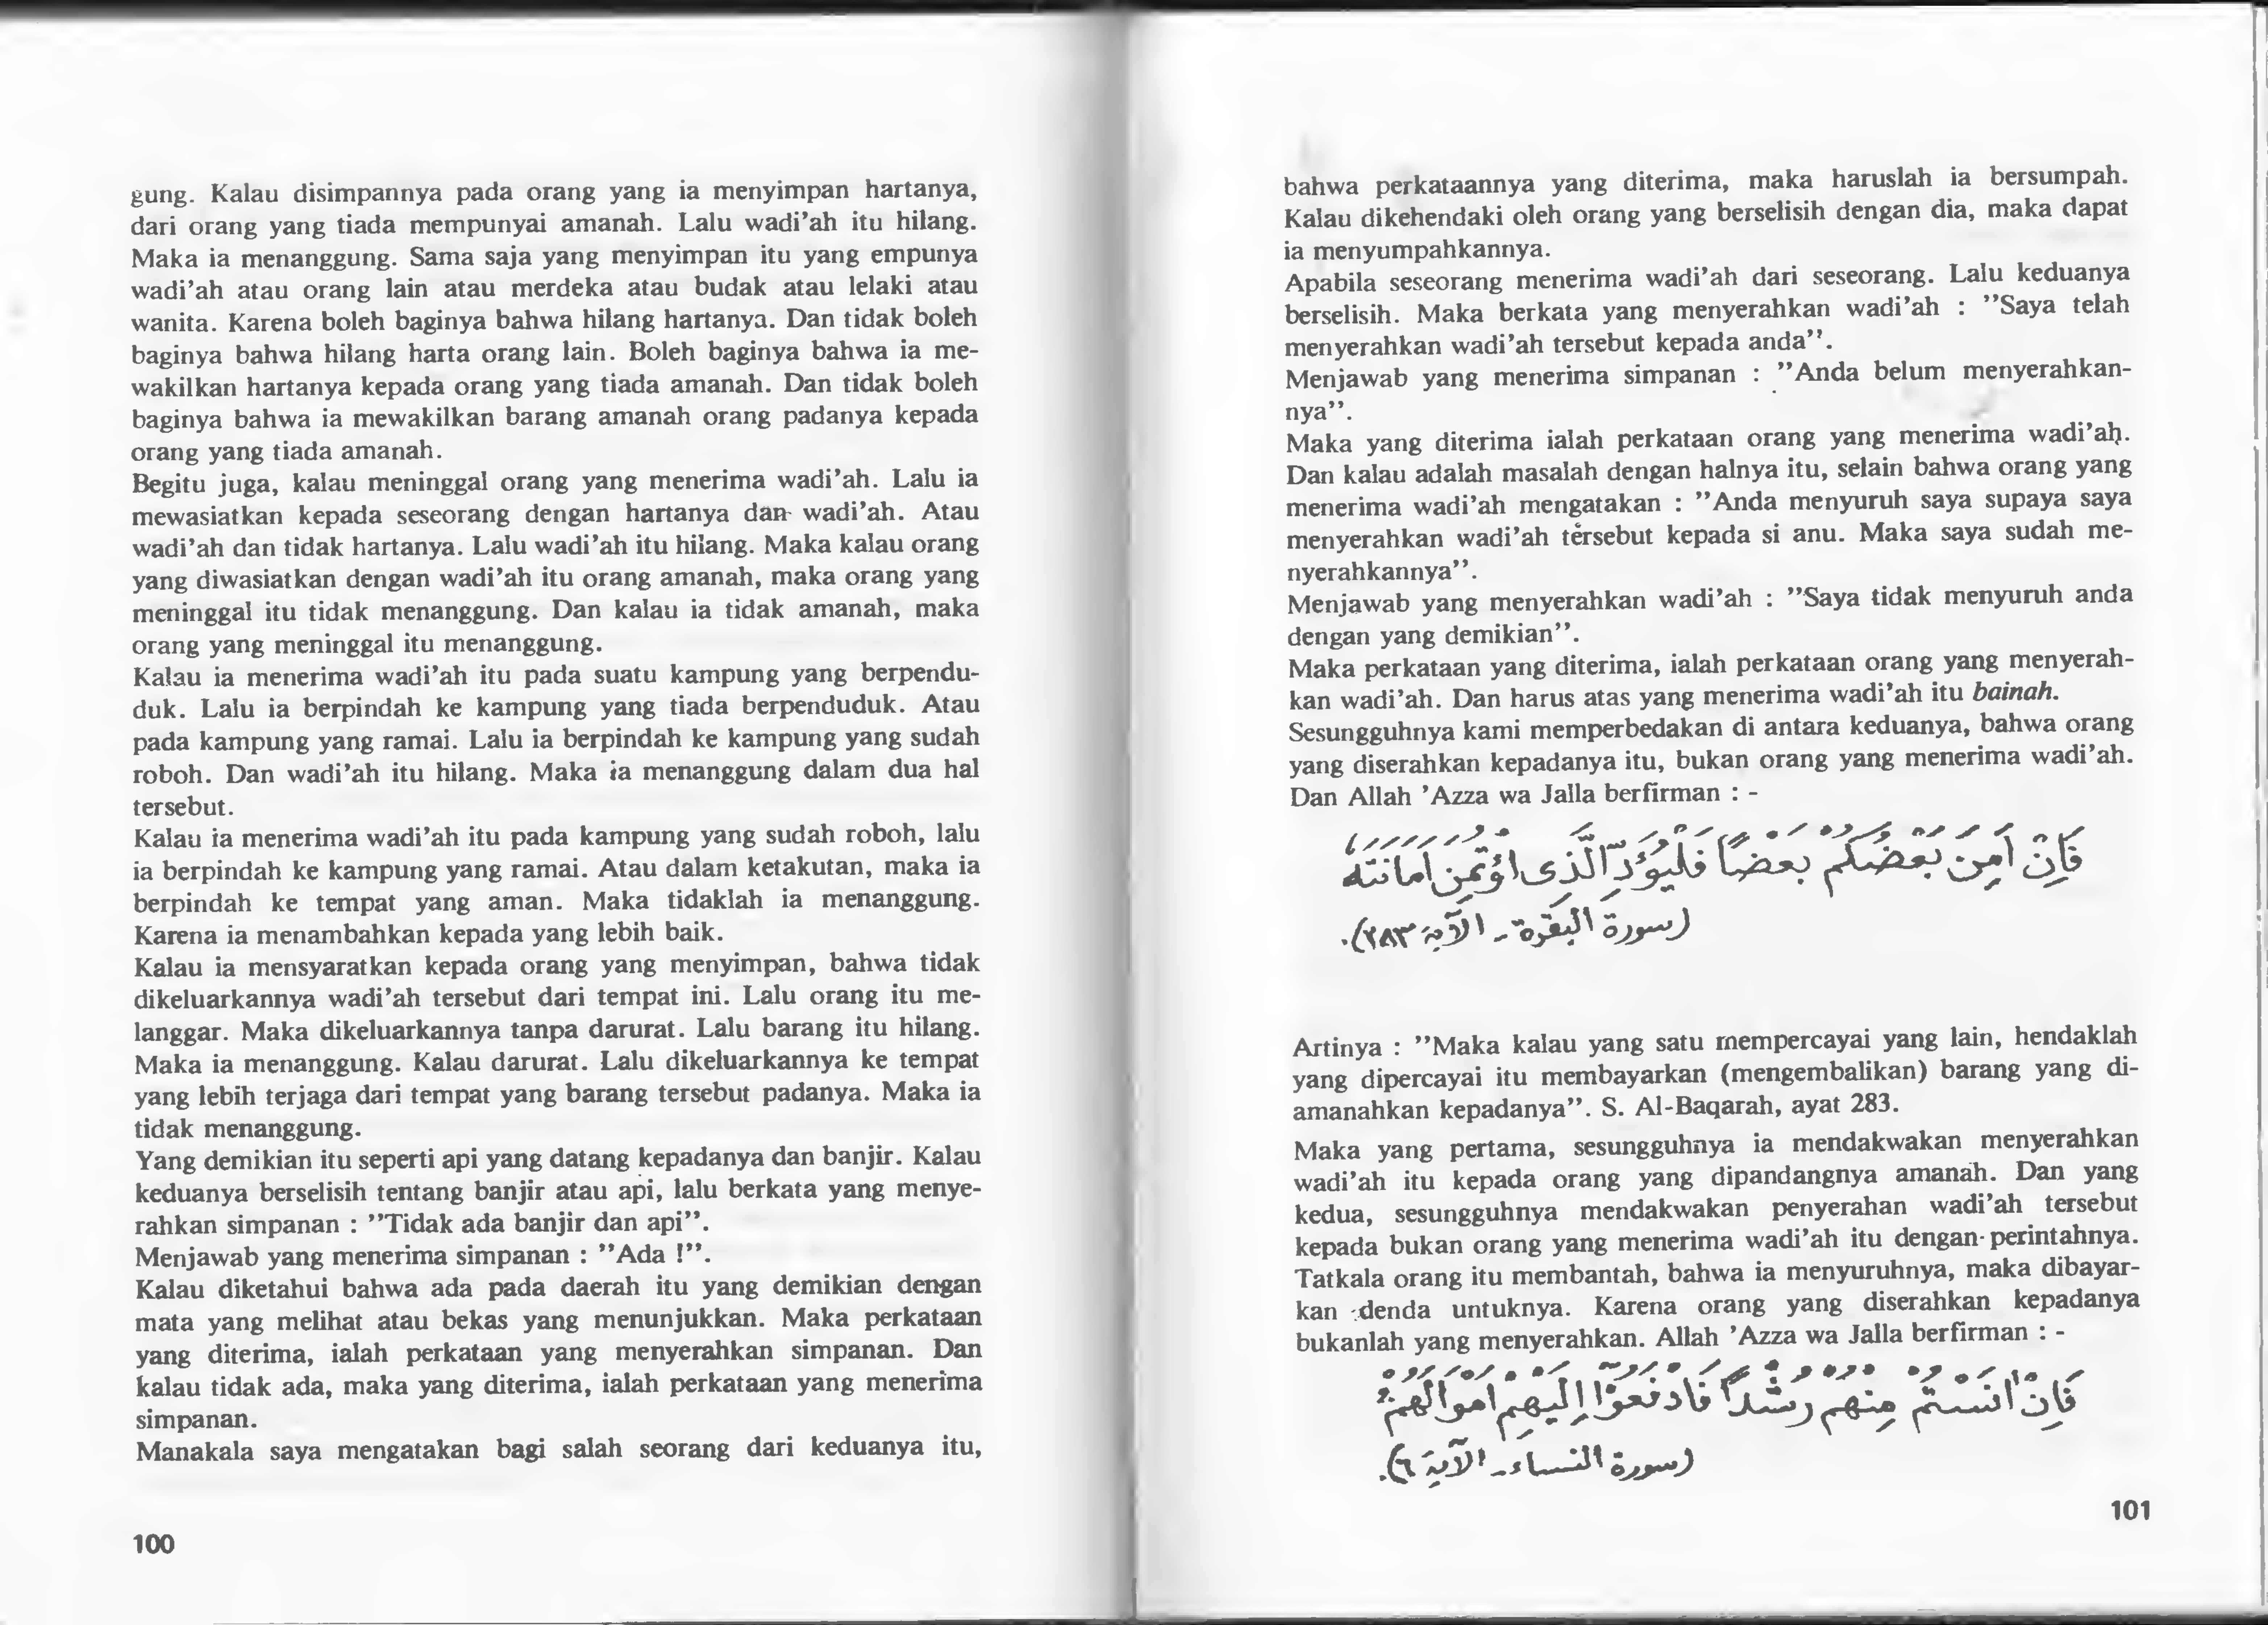 gung. Kalau disimpannya pada orang yang ia menyimpan hartanya,
dari orang yang tiada mempunyai amanah. Lalu wadi'ah itu hilang.
Maka ia menanggung. Sama saja yang menyimpan itu yang empunya
wadi'ah atau orang lain atau merdeka atau budak atau lelaki atau
wanita. Karena boleh baginya bahwa hilang hartanya. Dan tidak boleh
baginya bahwa hilang harta orang lain. Boleh baginya bahwa ia me-
wakilkan hartanya kepada orang yang tiada amanah. Dan tidak boleh
baginya bahwa ia mewakilkan barang amanah orang padanya kepada
orang yang tiada amanah.
Begitu juga, kalau meninggal orang yang menerima wadi'ah. Lalu ia
mewasiatkan kepada seseorang dengan hartanya dan wadi'ah. Atau
wadi'ah dan tidak hartanya. Lalu wadi'ah itu hilang. Maka kalau orang
yang diwasiatkan dengan wadi'ah itu orang amanah, maka orang yang
meninggal itu tidak menanggung. Dan kalau ia tidak amanah, maka
orang yang meninggal itu menanggung.
Kalau ia menerima wadi'ah itu pada suatu kampung yang berpendu-
duk. Lalu ia berpindah ke kampung yang tiada berpenduduk. Atau
pada kampung yang ramai. Lalu ia berpindah ke kampung yang sudah
roboh. Dan wadi'ah itu hilang. Maka ia menanggung dalam dua hal
tersebut.
Kalau ia menerima wadi'ah itu pada kampung yang sudah roboh, lalu
ia berpindah ke kampung yang ramai. Atau dalam ketakutan, maka ia
berpindah ke tempat yang aman. Maka tidaklah ia menanggung.
Karena ia menambahkan kepada yang lebih baik.
Kalau ia mensyaratkan kepada orang yang menyimpan, bahwa tidak
dikeluarkannya wadi'ah tersebut dari tempat ini. Lalu orang itu me-
langgar. Maka dikeluarkannya tanpa darurat. Lalu barang itu hilang.
Maka ia menanggung. Kalau darurat. Lalu dikeluarkannya ke tempat
yang lebih terjaga dari tempat yang barang tersebut padanya. Maka ia
tidak menanggung.
Yang demikian itu seperti api yang datang kepadanya dan banjir. Kalau
keduanya berselisih tentang banjir atau api, lalu berkata yang menye-
rahkan simpanan : "Tidak ada banjir dan api".
Menjawab yang menerima simpanan : "Ada !".
Kalau diketahui bahwa ada pada daerah itu yang demikian dengan
mata yang melihat atau bekas yang menunjukkan. Maka perkataan
yang diterima, ialah perkataan yang menyerahkan simpanan. Dan
kalau tidak ada, maka yang diterima, ialah perkataan yang menerima
simpanan.
Manakala saya mengatakan bagi salah seorang dari keduanya itu,
100
bahwa perkataannya yang diterima, maka haruslah ia bersumpah.
Kalau dikehendaki oleh orang yang berselisih dengan dia, maka dapat
ia menyumpahkannya.
Apabila seseorang menerima wadi'ah dari seseorang. Lalu keduanya
berselisih. Maka berkata yang menyerahkan wadi'ah : "Saya telah
menyerahkan wadi'ah tersebut kepada anda".
Menjawab yang menerima simpanan : "Anda belum menyerahkan-
nya".
Maka yang diterima ialah perkataan orang yang menerima wadi'ah.
Dan kalau adalah masalah dengan halnya itu, selain bahwa orang yang
menerima wadi'ah mengatakan : "Anda menyuruh saya supaya saya
menyerahkan wadi'ah tersebut kepada si anu. Maka saya sudah me-
nyerahkannya".
Menjawab yang menyerahkan wadi'ah : "Saya tidak menyuruh anda
dengan yang demikian".
Maka perkataan yang diterima, ialah perkataan orang yang menyerah-
kan wadi'ah. Dan harus atas yang menerima wadi'ah itu bainah.
Sesungguhnya kami memperbedakan di antara keduanya, bahwa orang
yang diserahkan kepadanya itu, bukan orang yang menerima wadi'ah.
Dan Allah 'Azza wa Jalla berfirman : -
فَإِنْ أَمِنَ بَعْضُكُمْ بَعْضًا فَلْيُؤَدِّ الَّذِى اؤْتُمِنَ أَمَانَتَهُ
(سورة البقرة - الآية ٢٨٣).
Artinya : "Maka kalau yang satu mempercayai yang lain, hendaklah
yang dipercayai itu membayarkan (mengembalikan) barang yang di-
amanahkan kepadanya". S. Al-Baqarah, ayat 283.
Maka yang pertama, sesungguhnya ia mendakwakan menyerahkan
wadi'ah itu kepada orang yang dipandangnya amanah. Dan yang
kedua, sesungguhnya mendakwakan penyerahan wadi'ah tersebut
kepada bukan orang yang menerima wadi'ah itu dengan perintahnya.
Tatkala orang itu membantah, bahwa ia menyuruhnya, maka dibayar-
kan denda untuknya. Karena orang yang diserahkan kepadanya
bukanlah yang menyerahkan. Allah 'Azza wa Jalla berfirman : -
فَإِنْ اٰنَسْتُمْ مِنْهُمْ رُشْدًا فَادْفَعُوْٓا إِلَيْهِمْ أَمْوَالَهُمْ
(سورة النساء - الآية ٦).
101